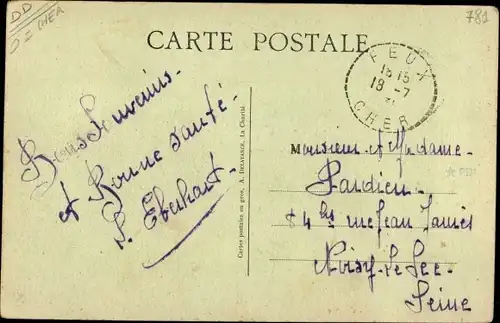 DD
D = CHER
781
CARTE POSTALE
FEUX
18 15
18 -7
CHER
Bons Souvenirs
et Bonne santé
P. Eberhart
Cartes postales en gros, A. DELAYANCE, La Charité
Monsieur et Madame
Pardieu
rue Jean Jaurès
Noisy-le-Sec
Seine